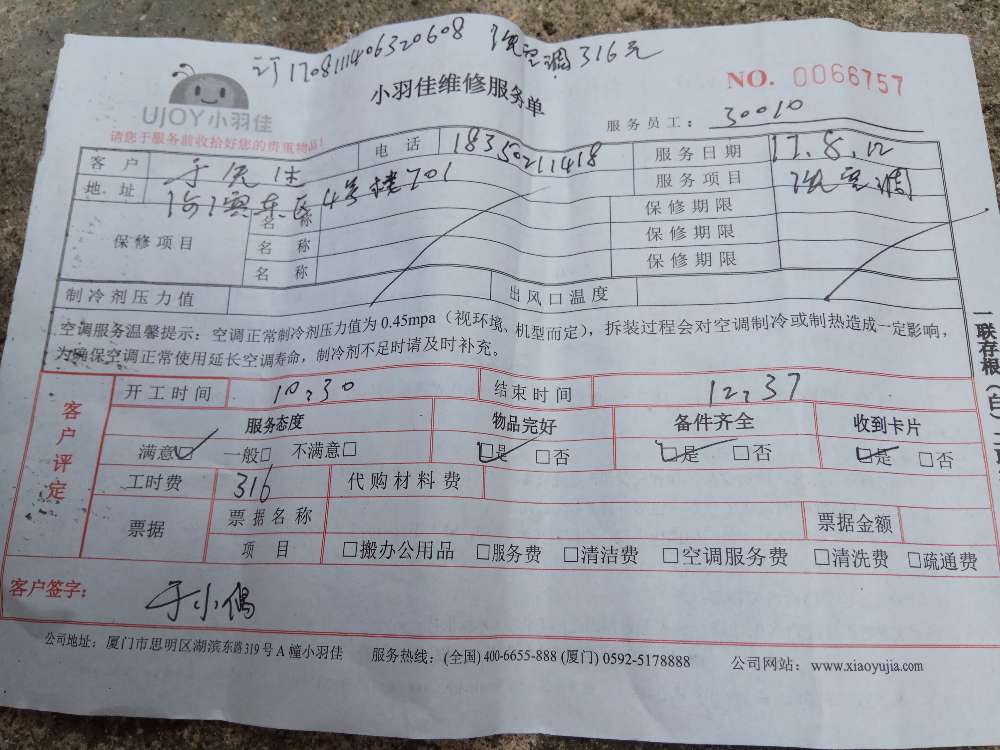 订170811406320608 洗空调316元
小羽佳维修服务单
NO. 0066757
UJOY小羽佳
请您于服务前收拾好您的贵重物品!
服务员工: 30010
客户 于先生 电话 18350211418 服务日期 17.8.12
地址 湖滨东区4号楼701 服务项目 洗空调
保修项目 名称 保修期限
名称 保修期限
名称 保修期限
制冷剂压力值 出风口温度
空调服务温馨提示: 空调正常制冷剂压力值为 0.45mpa (视环境、机型而定), 拆装过程会对空调制冷或制热造成一定影响,
为确保空调正常使用延长空调寿命, 制冷剂不足时请及时补充。
一联存根(白)
客户评定
开工时间 10:30 结束时间 12:37
服务态度 物品完好 备件齐全 收到卡片
满意☑ 一般□ 不满意□ ☑是 □否 ☑是 □否 ☑是 □否
工时费 316 代购材料费
票据 票据名称 票据金额
项目 □搬办公用品 □服务费 □清洁费 □空调服务费 □清洗费 □疏通费
客户签字: 于小偶
公司地址: 厦门市思明区湖滨东路319号A幢小羽佳 服务热线: (全国) 400-6655-888 (厦门) 0592-5178888 公司网站: www.xiaoyujia.com